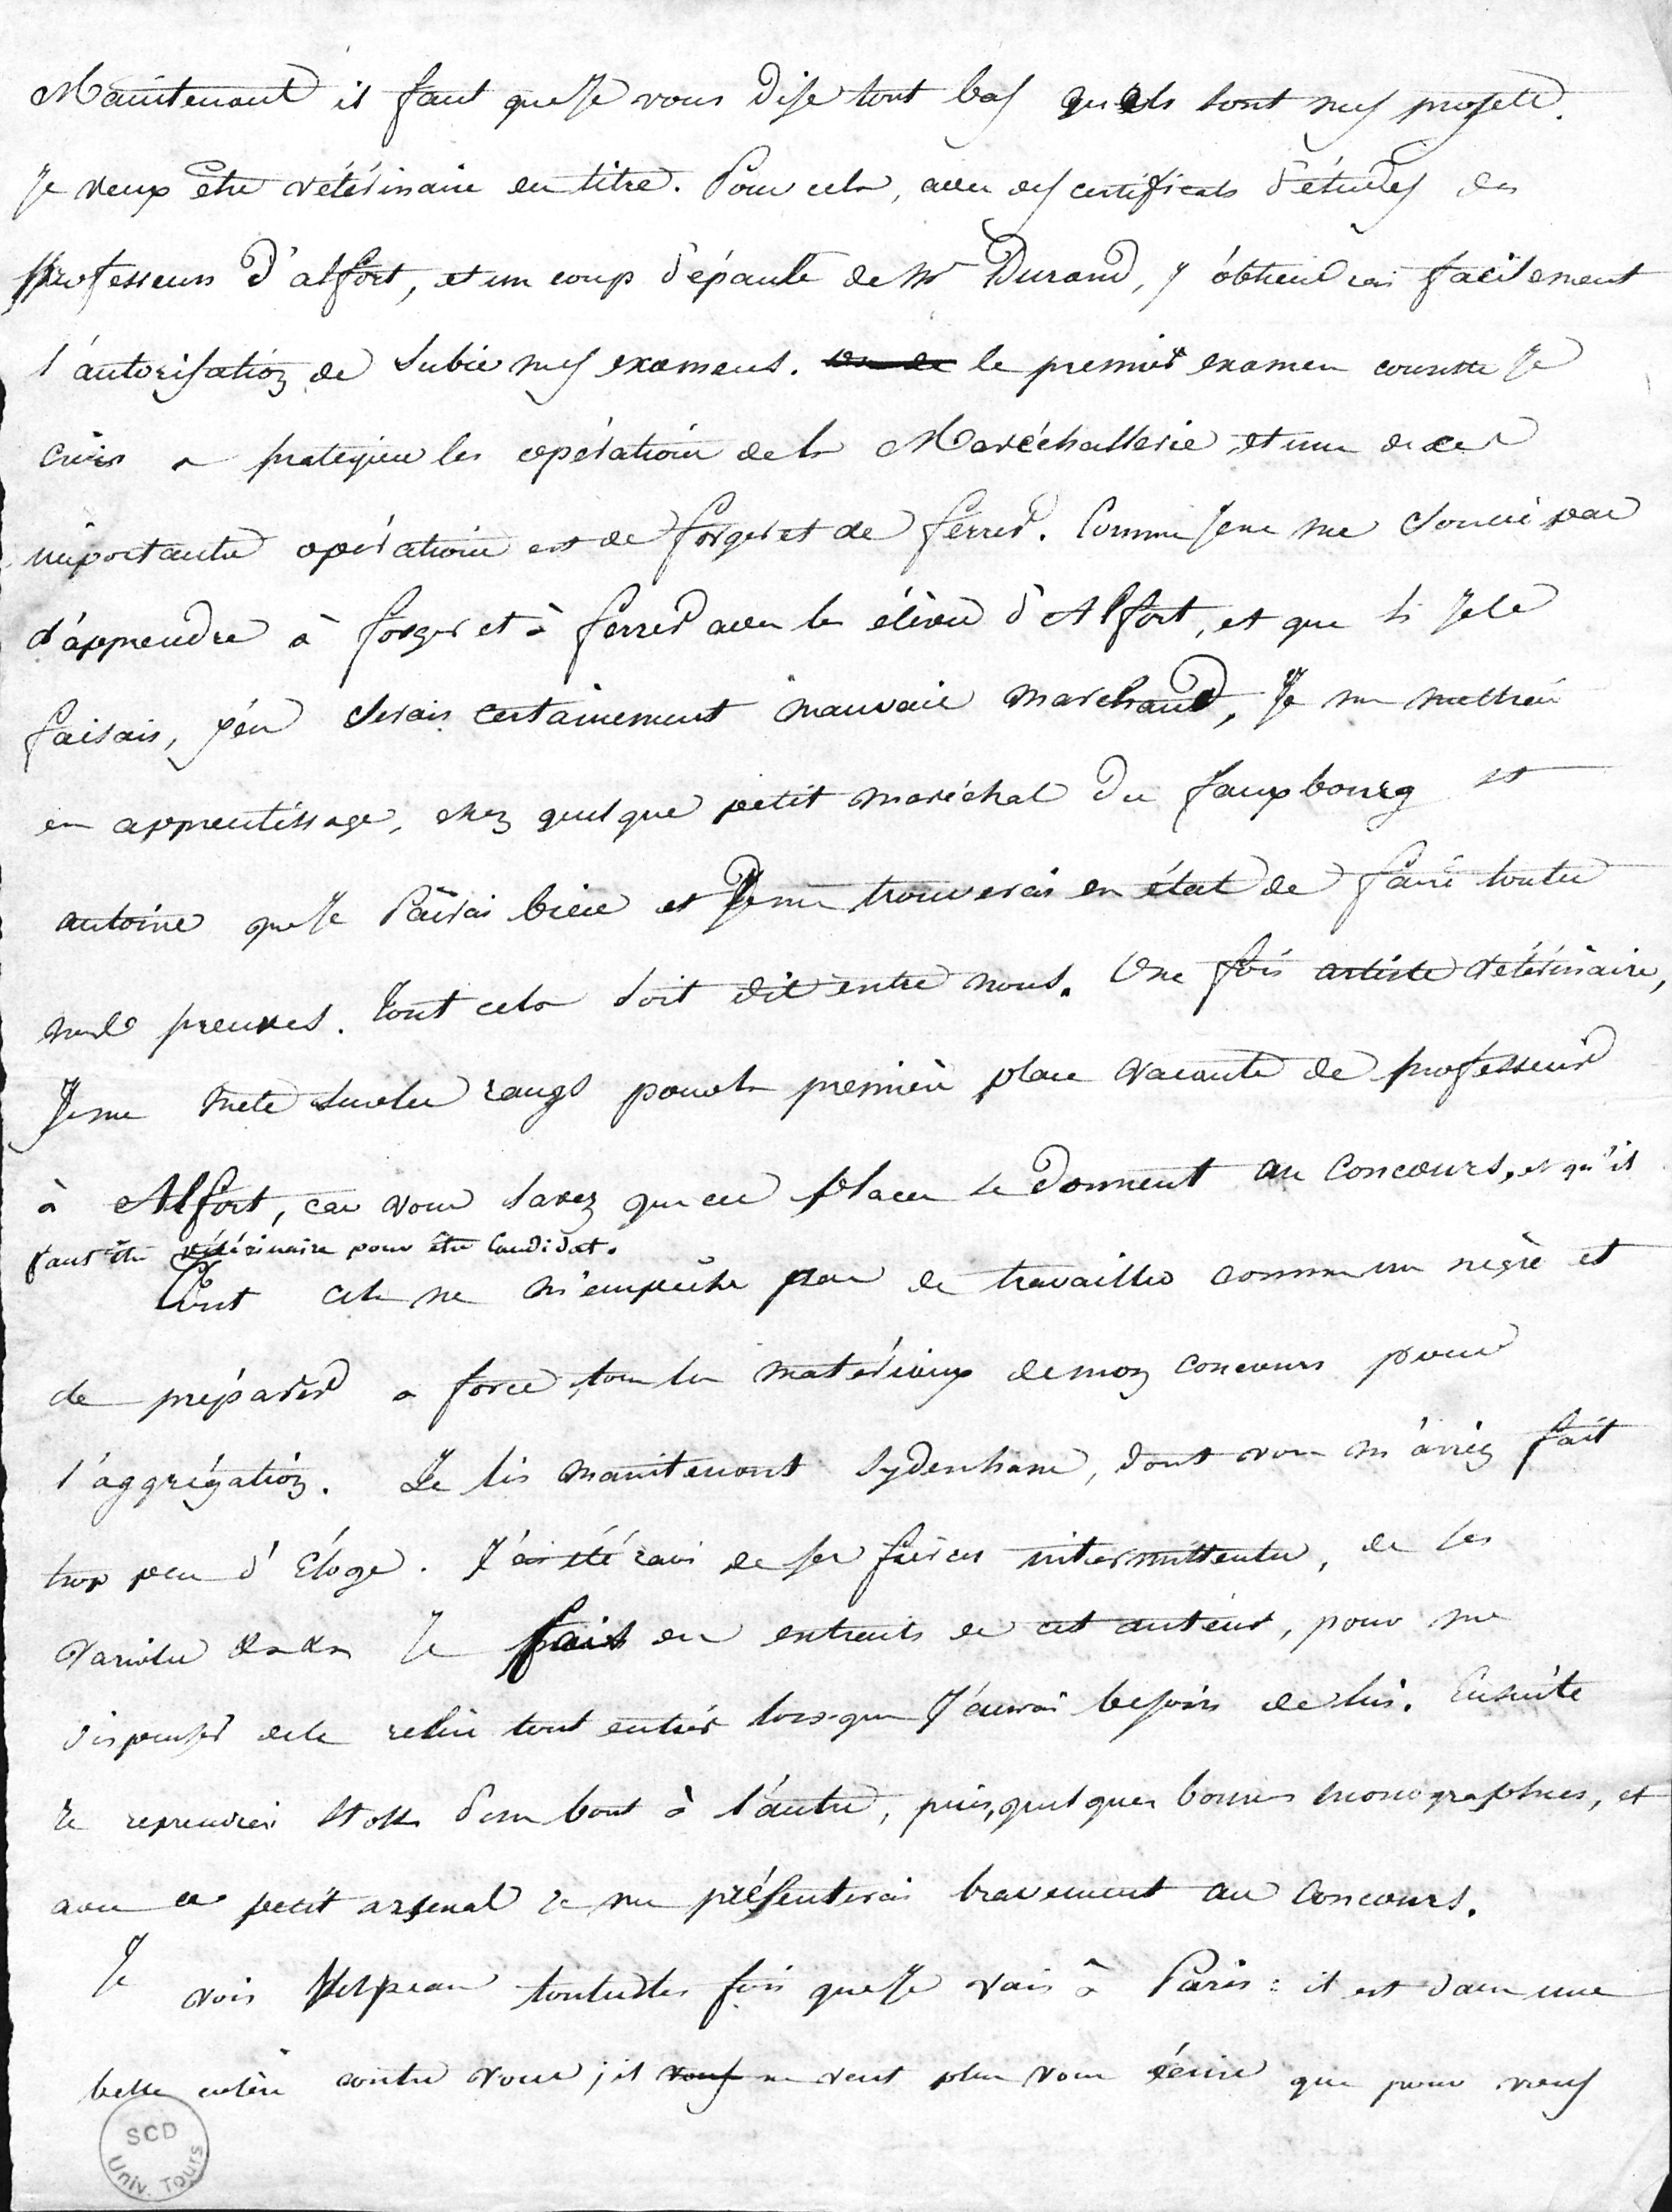 Maintenant il faut que Je vous dise tout bas quels sont mes projets.
Je veux être vétérinaire en titre. Pour cela, avec des certificats d'études des
professeurs d'alfort, et un coup d'épaule de Mr Durand, J'obtiendrai facilement
l'autorisation de subir mes examens. le premier examen consiste Je
crois a pratiquer les opérations de la Maréchallerie, et une de ces
importantes opérations est de forger et de ferrer. Comme Je ne me soucie pas
d'apprendre à forger et à ferrer avec les élèves d'Alfort, et que si Je le
faisais, J'en serais certainement mauvais marchand, Je me mettrai
en apprentissage, chez quelque petit maréchal du fauxbourg st
antoine que Je Païrai bien et Je me trouverai en état de faire toutes
mes preuves. Tout cela soit dit entre nous. Une fois artiste vétérinaire,
Je me mets sur les rangs pour la première place vacante de professeur
à Alfort, car vous savez que ces places se donnent au concours, et qu'il
faut être vétérinaire pour être Candidat.
Tout cela ne m'empêche pas de travailler comme un nègre et
de préparer a force, tous les matériaux de mon concours pour
l'aggrégation. Je lis maintenant Sydenham, dont vous m'aviez fait
trop peu d'Eloge. J'ai été ravi de ses fièvres intermittentes, de ses
varioles &a &a Je fais des extraits de cet auteur, pour me
dispenser de le relire tout entier lorsque J'aurai besoin de lui. Ensuite
Je reprendrai Stoll d'un bout à l'autre, puis, quelques bonnes monographies, et
avec ce petit arsenal Je me présenterai bravement au Concours.
Je vois Velpeau toutes les fois que Je vais à Paris : il est dans une
belle colère contre vous ; il vous ne veut plus vous écrire que pour vous
SCD
Univ. Tours